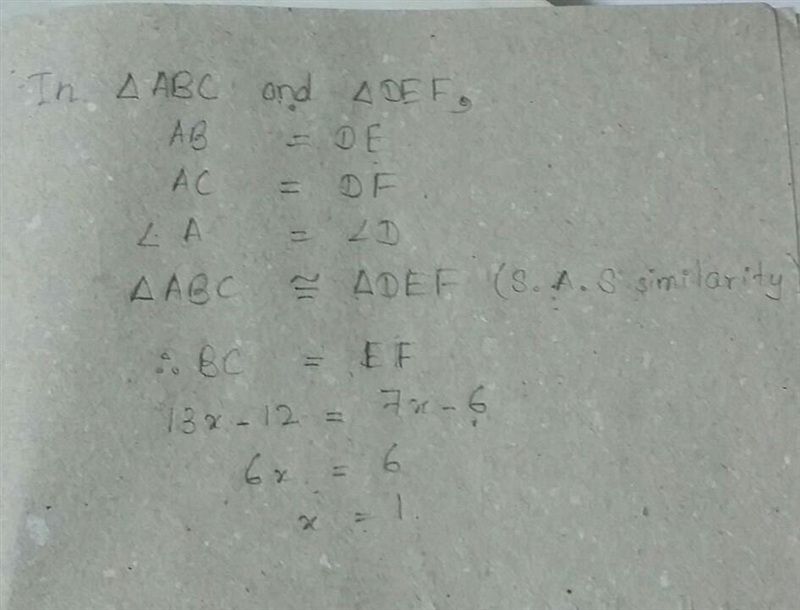 In △ABC and △DEF,
AB = DE
AC = DF
∠A = ∠D
△ABC ≅ △DEF (S.A.S similarity)
∴ BC = EF
13x - 12 = 7x - 6
6x = 6
x = 1